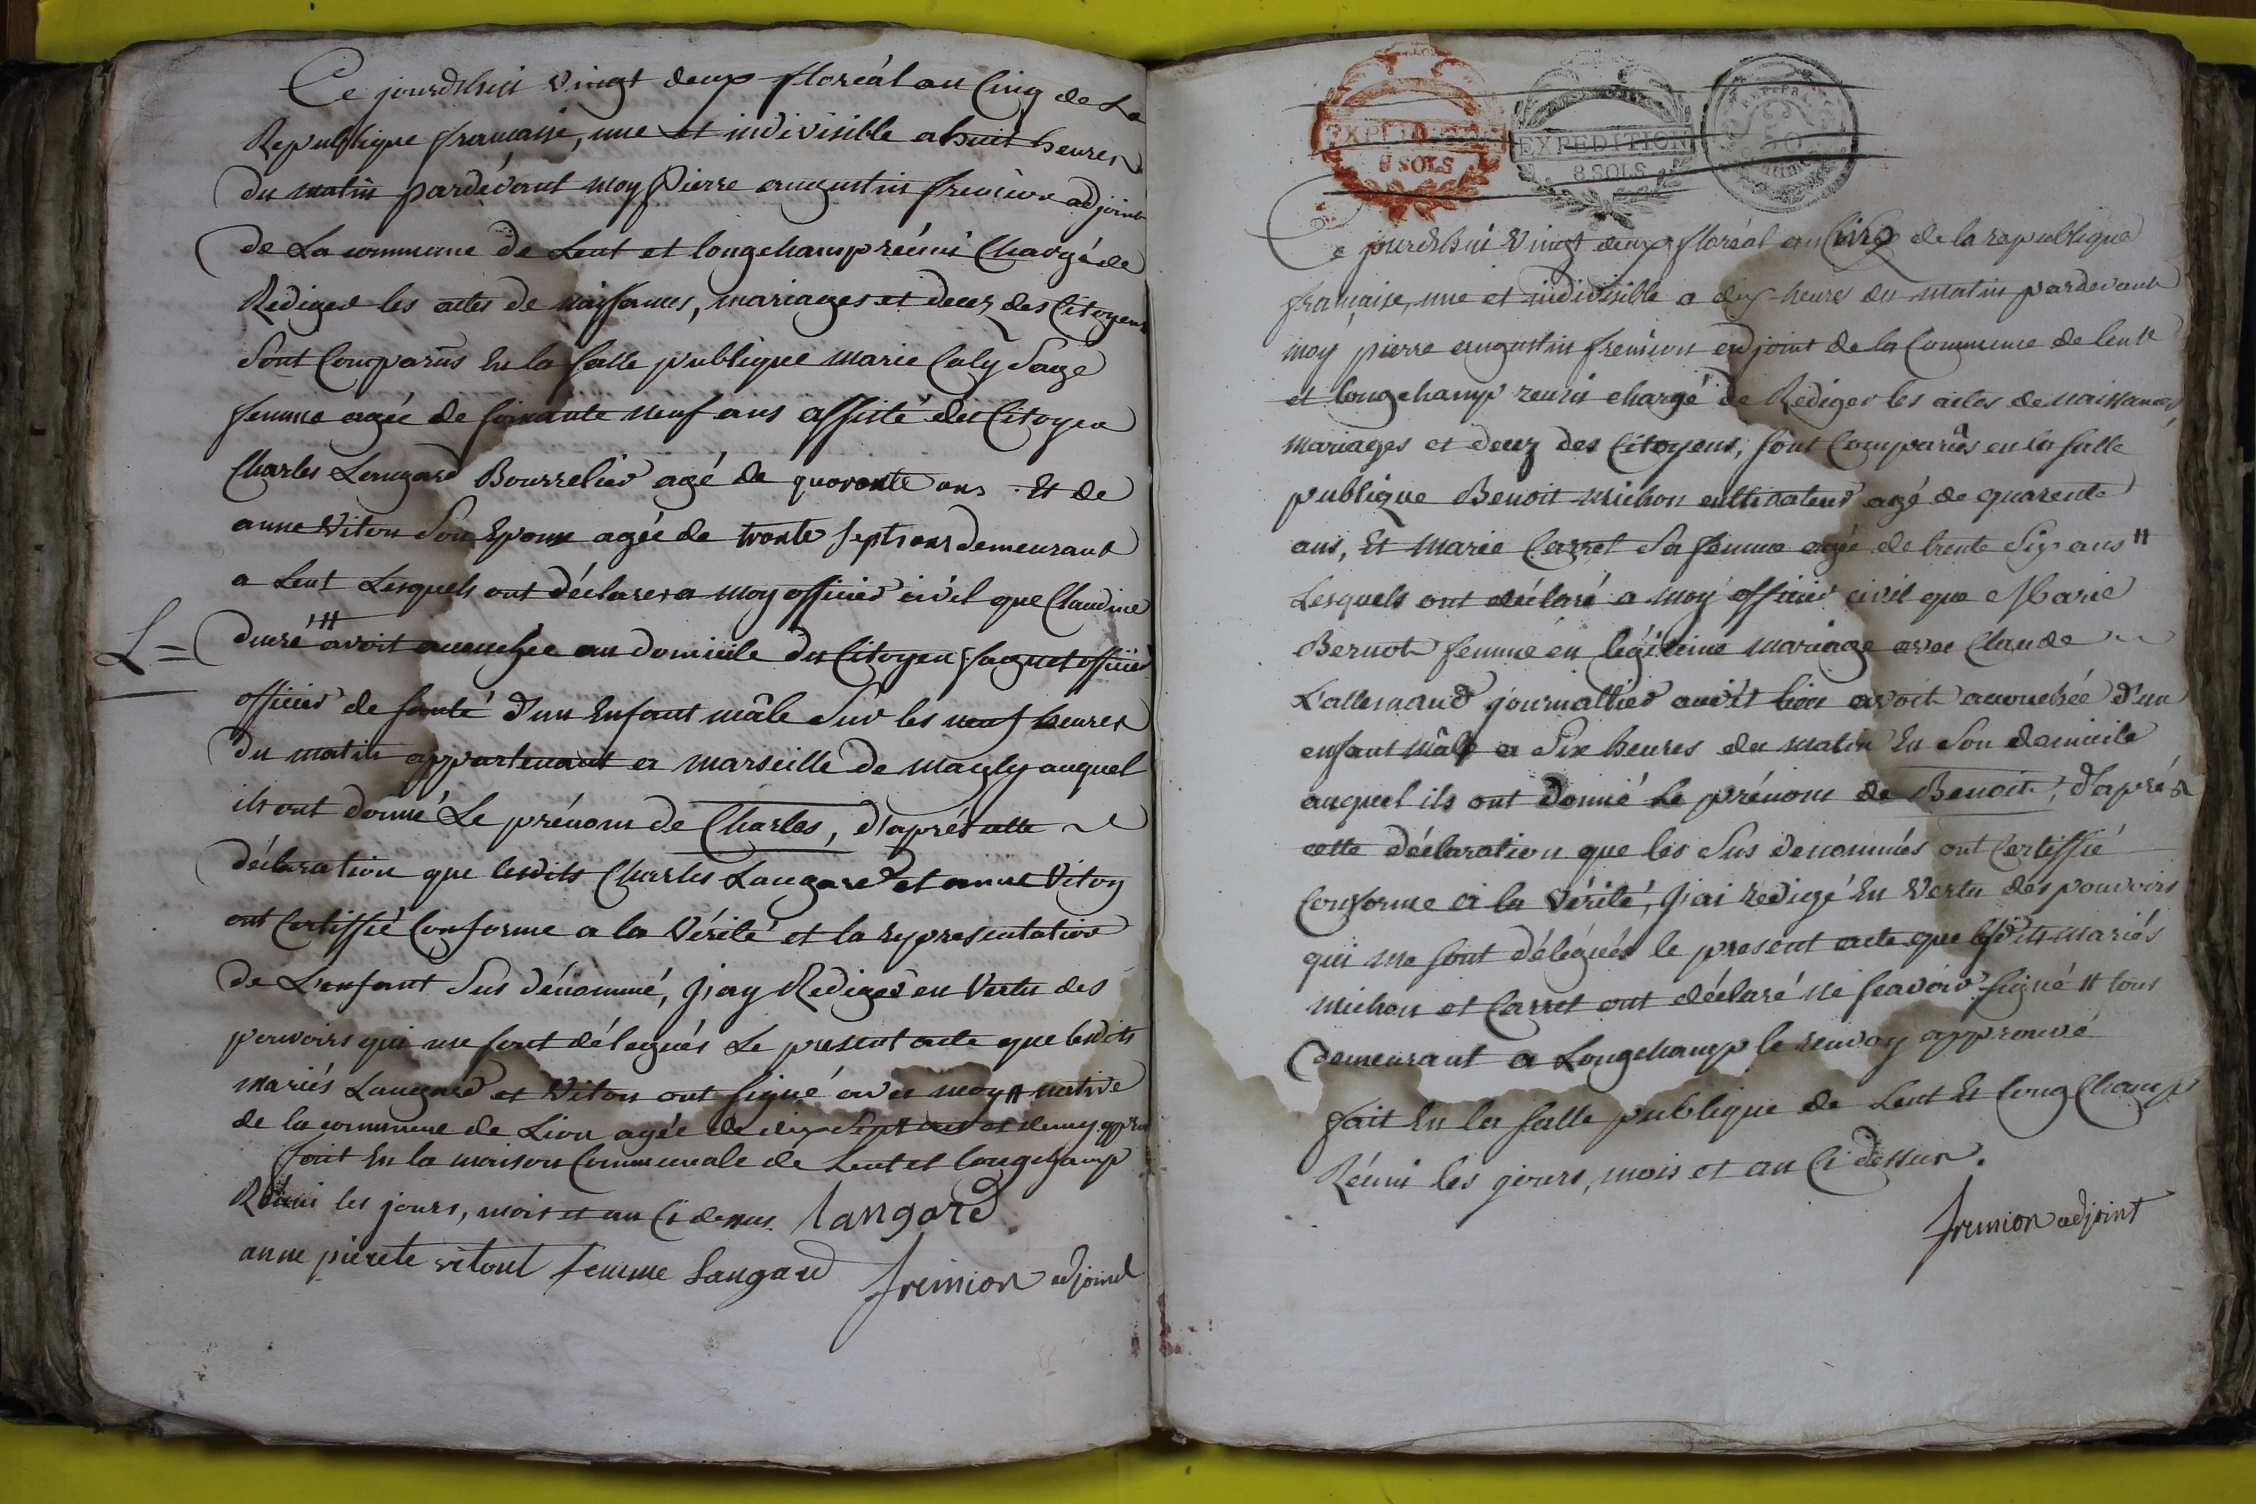 Ce jourd'huy vingt deux floréal an Cinq de La
Republique francaise, une et indivisible a huit heures
du matin pardevant moy Pierre augustin fremion adjoint
de La commune de Lent et longchamp réuni Chargé de
Rediger les actes de naissances, mariages et decez des Citoyens
Sont Comparus En la Salle publique marie Caly Sage
femme agée de soixante neuf ans assisté du Citoyen
Charles Langard Bourrelier agé de quarante ans Et de
anne Viton Son Epouse agée de trente Sept ans demeurant
a Lent Lesquels ont déclarer a moy officier civil que Claudine
L= duré /// avoit accouchée au domicile du Citoyen faguet officier
officier de santé d'un Enfant mâle Sur les neuf heures
du matin appartenant a marseille de mayly auquel
ils ont donné Le prénom de Charles, d'aprés cette
déclaration que lesdits Charles Langard et anne Viton
ont Certiffié Conforme a la Vérité et la representation
de L'enfant Sus dénommé, J'ay Rediger en Vertu des
pouvoirs qui me sont délegués Le present acte que lesdits
mariés Langard et Viton ont signé avec moy // native
de la commune de Lion agée de dix Sept ans et demy
fait En la maison Communale de Lent et longchamp
Réuni les jours, mois et an Ci dessus. langard
anne pierete vitout femme Langard fremion adjoint
EXPEDITION
8 SOLS
EXPEDITION
8 SOLS
50
Ce jourd'hui Vingt deux floréal an Cinq de la republique
française, une et indivisible a dix heures du matin pardevant
moy pierre augustin fremion adjoint de la Commune de lent
et longchamp reuni chargé de Rediger les actes de naissances
mariages et decez des Citoyens, sont Comparûs en la salle
publique Benoit michon cultivateur agé de quarente
ans, Et marie Carret Sa femme agée de trente Six ans //
Lesquels ont déclaré a moy officier civil que Marie
Bernot femme en légitime mariage avec Claude
L'allemand journallier audit lieu avoit accouchée d'un
enfant mâle a Six heures du matin En Son domicile
auquel ils ont Donné Le prénom de Benoit, d'aprés
cette déclaration que les Sus denommés ont Certiffié
Conforme a la Vérité, J'ai redigé En Vertu des pouvoirs
qui me sont délégués le present acte que lesdits mariés
michon et Carret ont déclaré ne scavoir signé // tous
demeurant a Longchamp le renvoy approuvé
fait En la salle publique de Lent Et long Champ
Réuni les jours, mois et an Ci dessus.
fremion adjoint